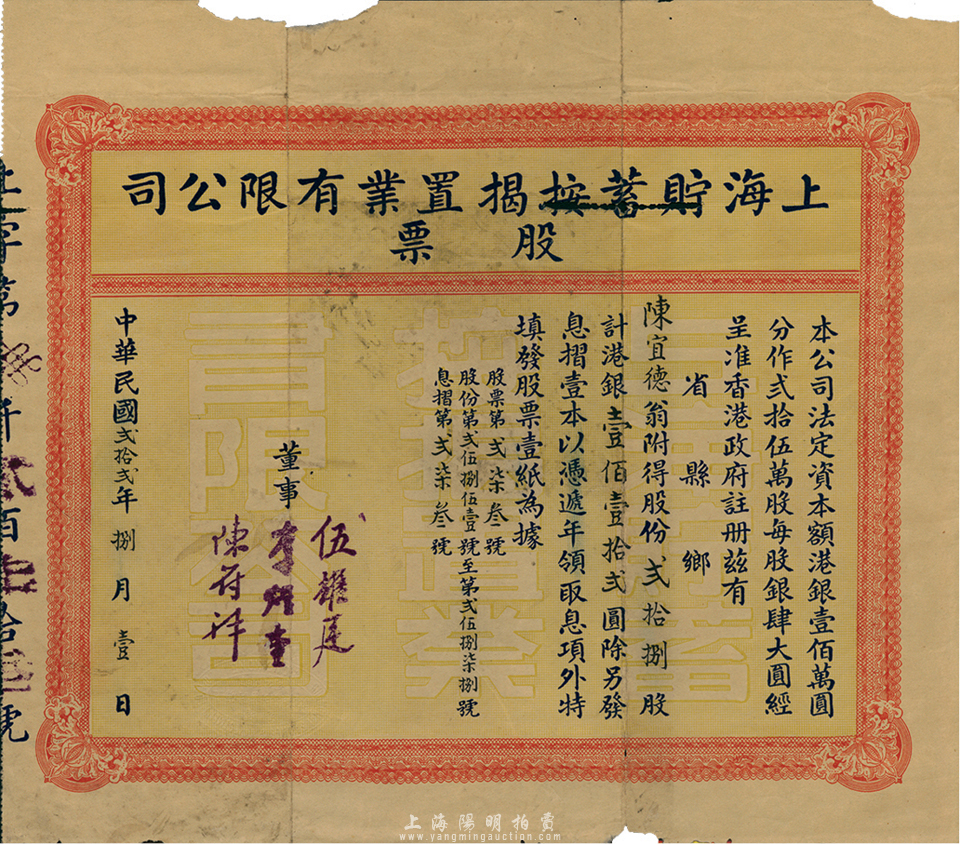 上海貯蓄按揭置業有限公司
股票
本公司法定資本額港銀壹佰萬圓
分作弍拾伍萬股每股銀肆大圓經
呈准香港政府註册茲有
省縣鄉
陳宜德翁附得股份弍拾捌股
計港銀壹佰壹拾弍圓除另發
息摺壹本以憑遞年領取息項外特
填發股票壹紙為據
股票第弍柒叁號
股份第弍伍捌伍壹號至第弍伍捌柒捌號
息摺第弍柒叁號
董事
伍
陳
中華民國弍拾弍年捌月壹日
上海陽明拍賣
www.yangmingauction.com